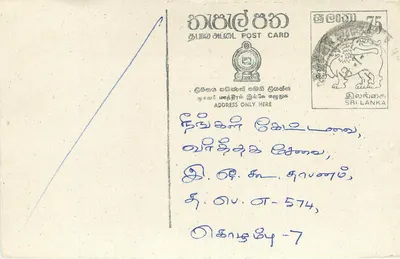 තැපැල් පත
தபால் அட்டை POST CARD
ශ්‍රී ලංකා 75
இலங்கை
SRI LANKA
ලිපිනය පමණක් මෙහි ලියන්න
முகவரி மாத்திரம் இங்கே எழுதுக
ADDRESS ONLY HERE
நீங்கள் கேட்டவை,
வர்த்தக சேவை,
இ. ஒ. கூ. தாபனம்,
த. பெ. எ - 574,
கொழும்பு - 7